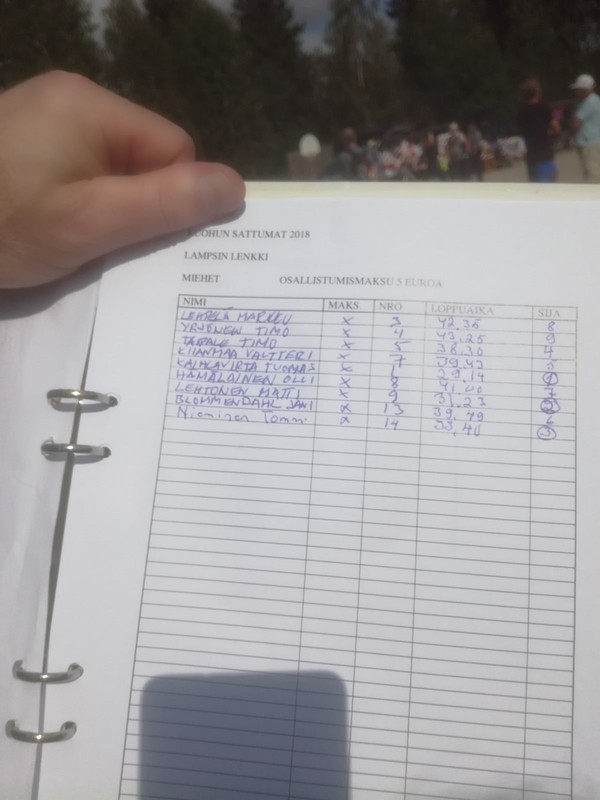 KUOHUN SATTUMAT 2018
LAMPSIN LENKKI
MIEHET OSALLISTUMISMAKSU 5 EUROA
NIMI MAKS. NRO LOPPUAIKA SIJA
LEHTELÄ MARKKU x 3 42,36 8
YRJÖNEN TIMO x 4 43,25 9
TIMO x 5 38,30 4
KIIANMAA VALTTERI x 7 5
KALHLAVIRTA TUOMAS x 1 29,14 1
HÄMÄLÄINEN OLLI x 8 41,00 7
LEHTONEN MATTI x 9 31,23 2
BLOMMENDAHL JANI x 13 39,79 6
Nieminen Tommi x 14 33,40 3